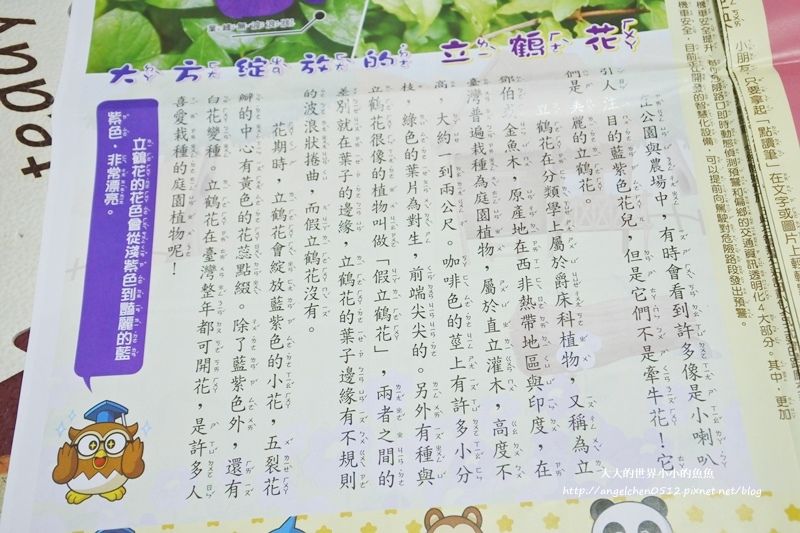 大方綻放的立鶴花
在公園與農場中，有時會看到許多像是小喇叭
引人注目的藍紫色花兒，但是它們不是牽牛花！它
們是美麗的立鶴花。
立鶴花在分類學上屬於爵床科植物，又稱為立
鄧伯、金魚木，原產地在西非熱帶地區與印度，在
臺灣普遍栽種為庭園植物，屬於直立灌木，高度不
高，大約一到兩公尺。咖啡色的莖上有許多小分
枝，綠色的葉片為對生，前端尖尖的。另外有種與
立鶴花很像的植物叫做「假立鶴花」，兩者之間的
差別就在葉子的邊緣，立鶴花的葉子邊緣有不規則
的波浪狀捲曲，而假立鶴花沒有。
花期時，立鶴花會綻放藍紫色的小花，五裂花
瓣的中心有黃色的花蕊點綴。除了藍紫色外，還有
白花變種。立鶴花在臺灣整年都可開花，是許多人
喜愛栽種的庭園植物呢！
立鶴花的花色會從淺紫色到豔麗的藍
紫色，非常漂亮。
小朋友，只要拿起「點讀筆」在文字或圖片上輕
機車安全提升、都市危險路口即時動態偵測預警和偏鄉的交通資訊透明化4大部分。其中，更加
機車安全，目前正在開發的智慧化設備，可以提前向駕駛對危險路段發出預警。
大大的世界小小的魚魚
http://angelchen0512.pixnet.net/blog